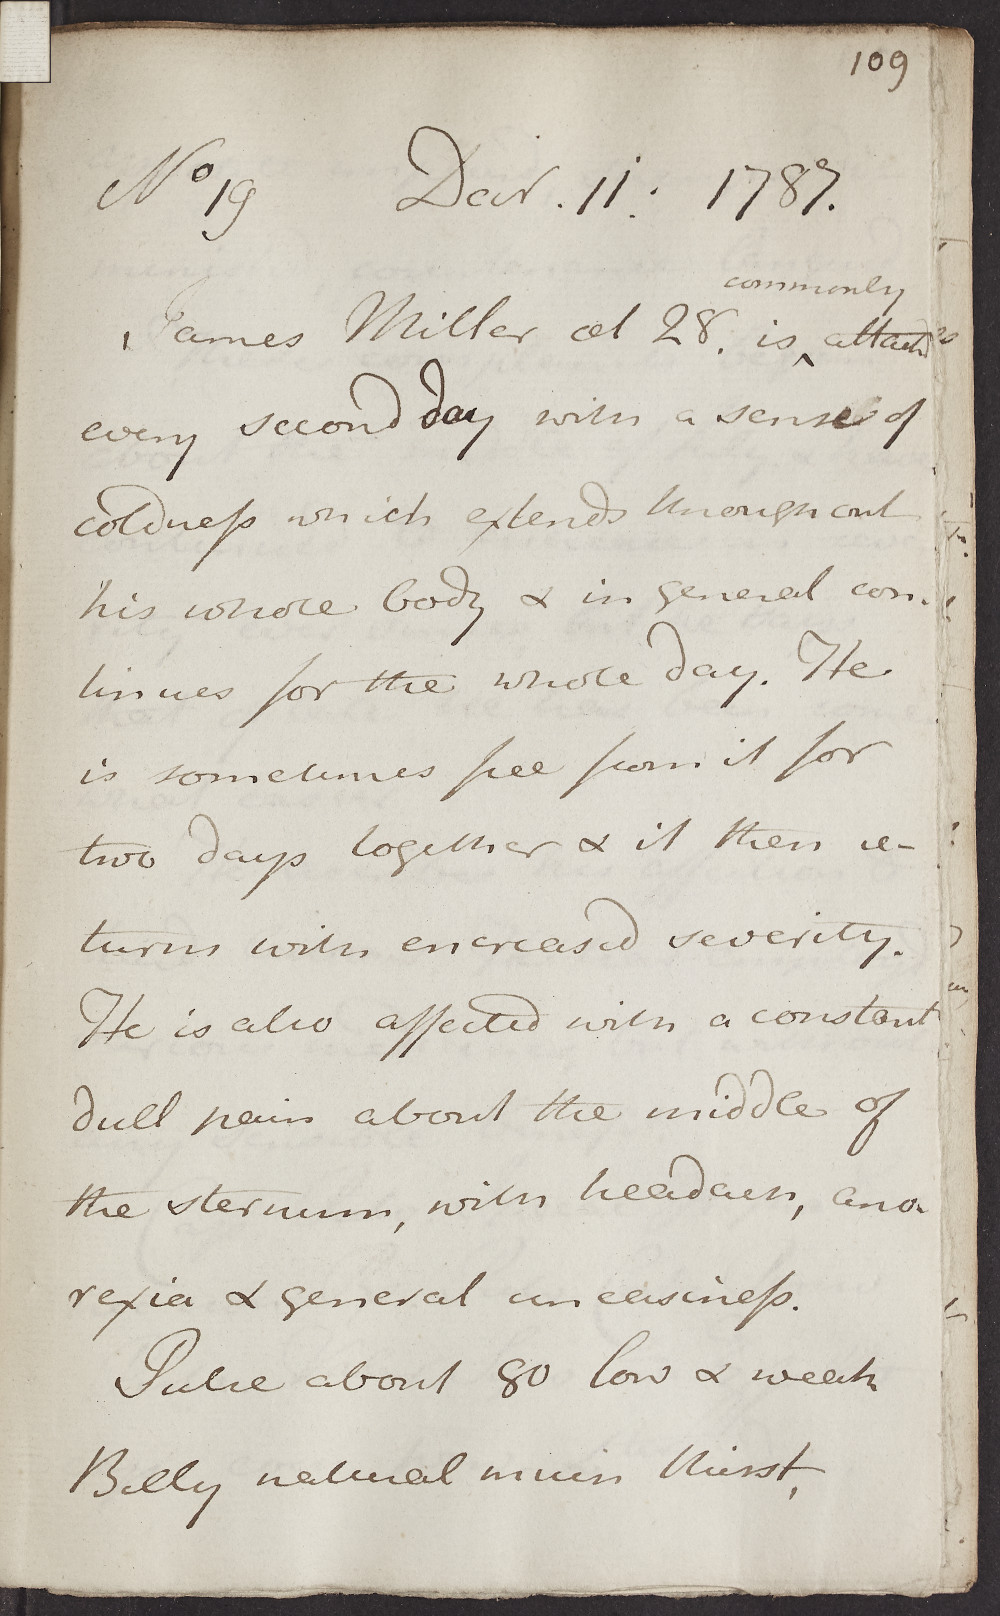 109
No 19 Decr. 11. 1787.
commonly
James Miller æt 28. is ^ attackd
every second day with a sense of
coldness which extends throughout
his whole body & in general con-
tinues for the whole day. He
is sometimes free from it for
two days together & it then re-
turns with encreased severity.
He is also affected with a constant
dull pain about the middle of
the sternum, with headach, ano-
rexia & general uneasiness.
Pulse about 80 low & weak
Belly natural much thirst,